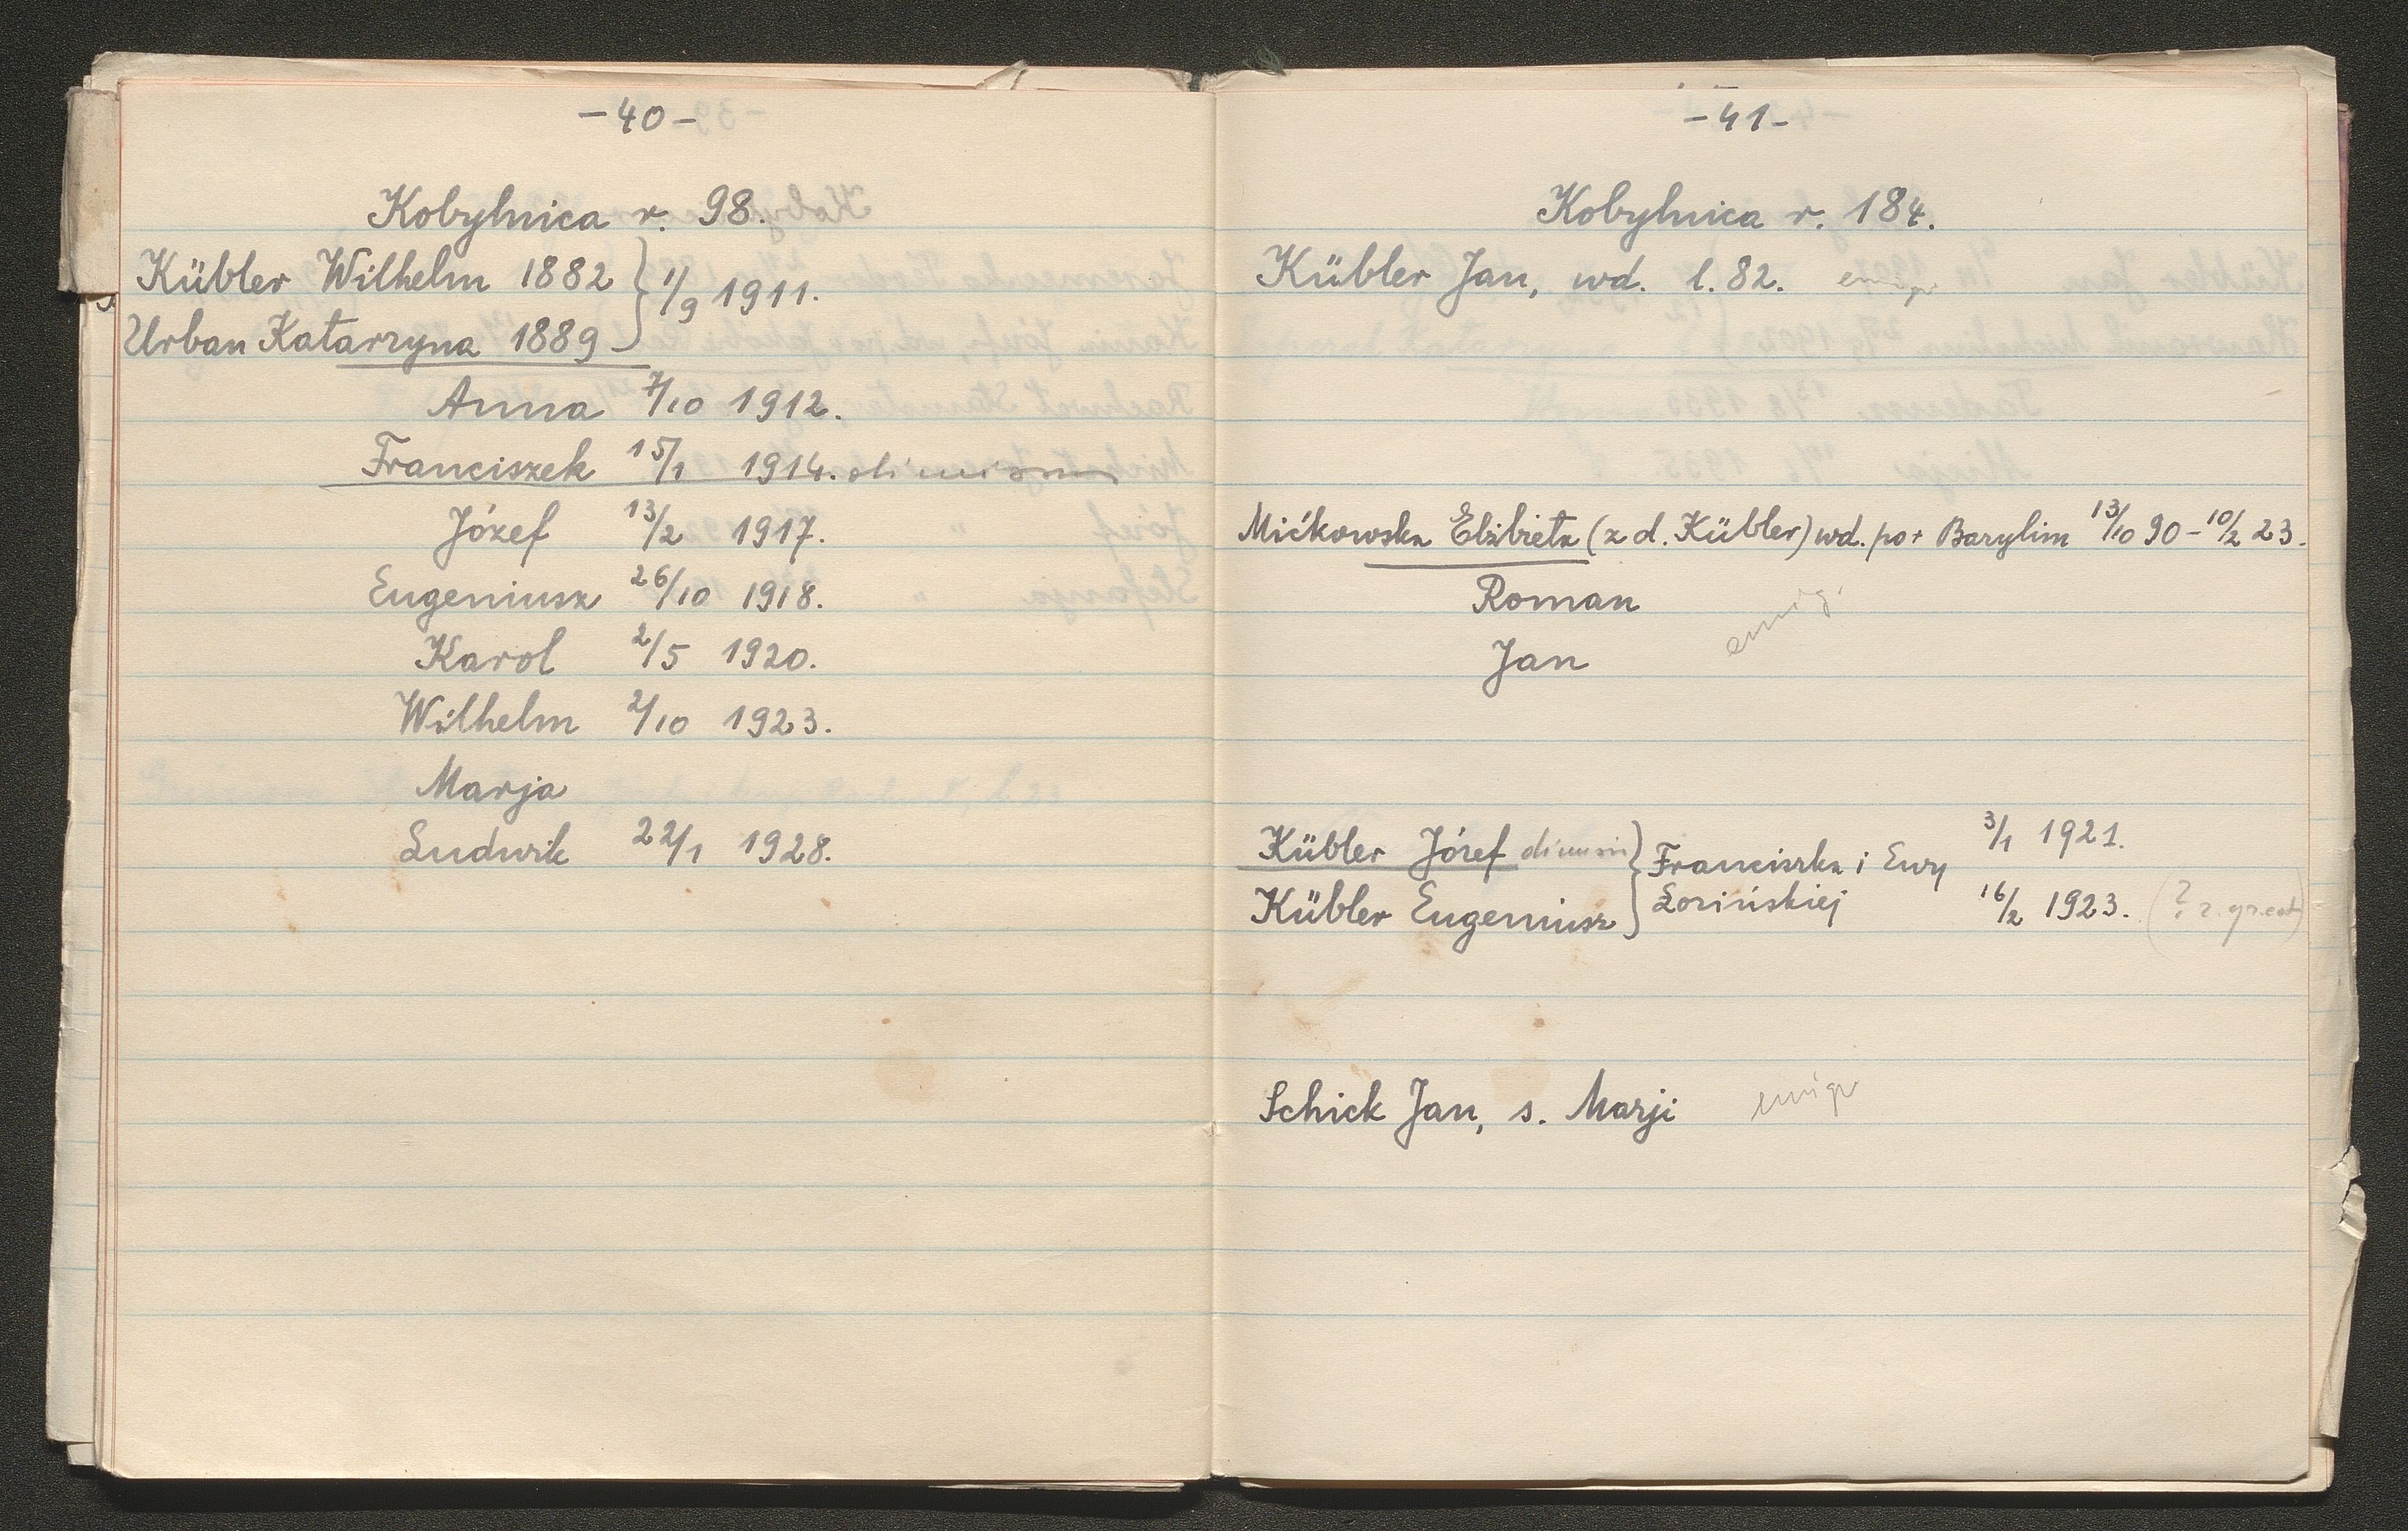 -40-
Kobylnica r. 98.
Kübler Wilhelm 1882 } 1/9 1911.
Urban Katarzyna 1889
Anna 7/10 1912.
Franciszek 15/1 1914.
Józef 13/2 1917.
Eugeniusz 26/10 1918.
Karol 2/5 1920.
Wilhelm 2/10 1923.
Marja
Ludwik 22/1 1928.
-41-
Kobylnica r. 184.
Kübler Jan, wd. l. 82. emigr
Mićkowska Elżbieta (z d. Kübler) wd. por Barylim 13/10 90 - 10/2 23.
Roman
emig.
Jan
Kübler Józef dimissi } Franciszka i Ewy 3/1 1921.
Kübler Eugeniusz Łozińskiej 16/2 1923. (?
Schick Jan, s. Marji emigr